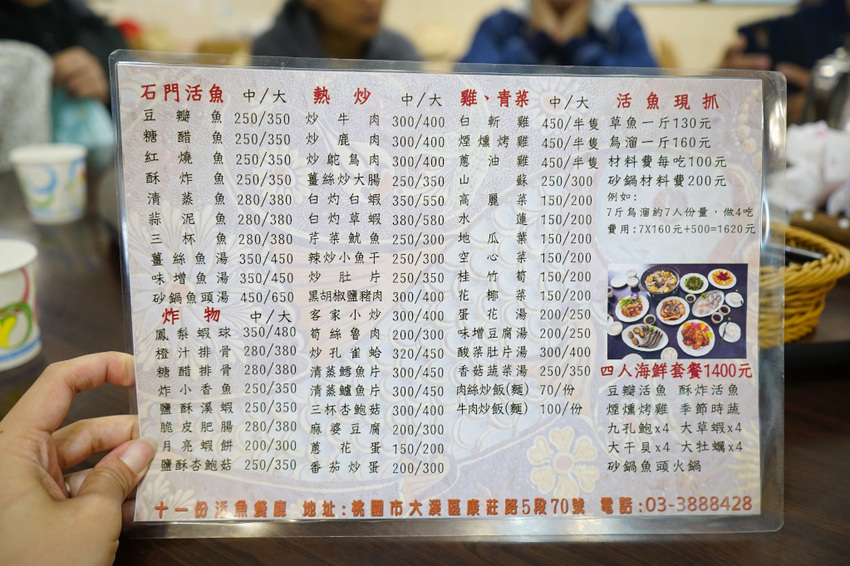 石門活魚 中/大
豆瓣魚 250/350
糖醋魚 250/350
紅燒魚 250/350
酥炸魚 250/350
清蒸魚 250/350
蒜泥魚 280/380
三杯魚 280/380
薑絲魚湯 350/450
味增魚湯 350/450
砂鍋魚頭湯 450/650
炸物 中/大
鳳梨蝦球 350/480
橙汁排骨 280/380
糖醋排骨 280/380
炸小香魚 250/350
鹽酥溪蝦 250/350
脆皮肥腸 280/380
月亮蝦餅 200/300
鹽酥杏鮑菇 250/350
熱炒 中/大
炒牛肉 300/400
炒鹿肉 300/400
炒鴕鳥肉 300/400
薑絲炒大腸 250/350
白灼白蝦 350/550
白灼草蝦 380/580
芹菜魷魚 250/300
辣炒小魚干 250/300
炒肚片 250/300
黑胡椒鹽豬肉 300/400
客家小炒 300/400
筍絲魯肉 200/300
炒孔雀蛤 320/450
清蒸鱈魚片 300/450
清蒸鱸魚片 300/450
三杯杏鮑菇 300/400
麻婆豆腐 200/300
蔥花蛋 150/200
番茄炒蛋 200/300
雞、青菜 中/大
白斬雞 450/半隻
煙燻烤雞 450/半隻
蔥油雞 450/半隻
山蘇 250/300
高麗菜 150/200
水蓮 150/200
地瓜菜 150/200
空心菜 150/200
桂竹筍 150/200
花椰菜 150/200
蛋花湯 200/250
味增豆腐湯 200/250
酸菜肚片湯 300/400
香菇蔬菜湯 250/350
肉絲炒飯(麵) 70/份
牛肉炒飯(麵) 100/份
活魚現抓
草魚一斤130元
鳥溜一斤160元
材料費每吃100元
砂鍋材料費200元
例如:
7斤鳥溜約7人份量，做4吃
費用:7X160元+500=1620元
四人海鮮套餐1400元
豆瓣活魚 酥炸活魚
煙燻烤雞 季節時蔬
九孔鮑x4 大草蝦x4
大干貝x4 大牡蠣x4
砂鍋魚頭火鍋
十一份活魚餐廳 地址:桃園市大溪區康莊路5段70號 電話:03-3888428